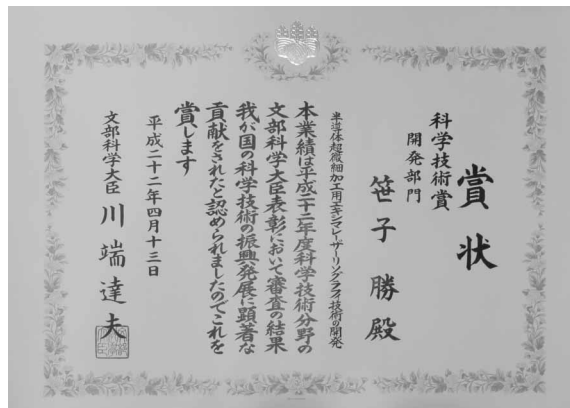 賞状
科学技術賞
開発部門
笹子勝殿
半導体超微細加工用エキシマレーザーリソグラフィ技術の開発
本業績は平成二十二年度科学技術分野の
文部科学大臣表彰において審査の結果
我が国の科学技術の振興発展に顕著な
貢献をされたと認められましたのでこれを
賞します
平成二十二年四月十三日
文部科学大臣 川端達夫